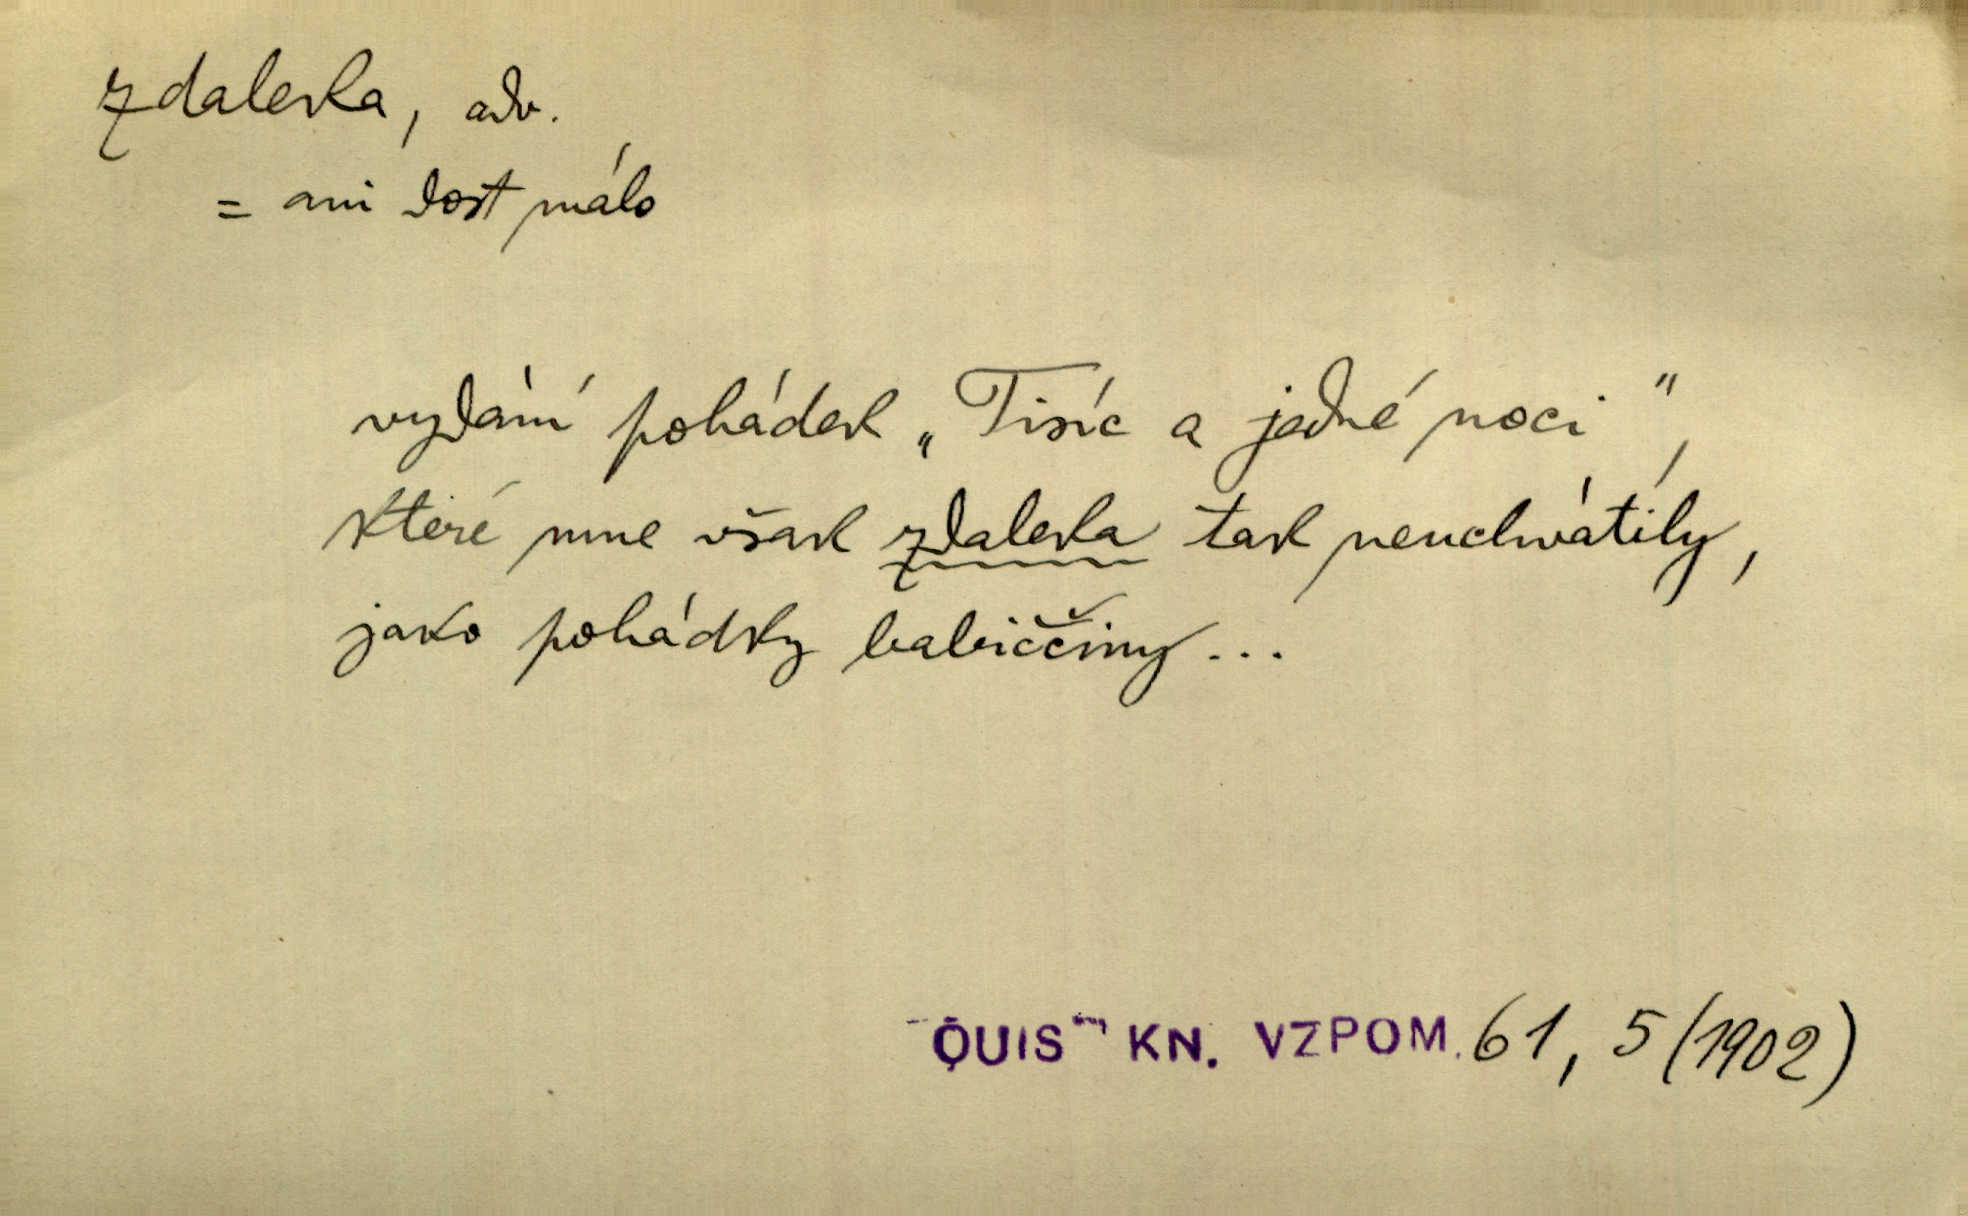 zdaleka, adv.
= ani dost málo
vydání pohádek „Tisíc a jedné noci",
které mne však zdaleka tak neuchvátily,
jako pohádky babiččiny...
QUIS KN. VZPOM. 61, 5 (1902)